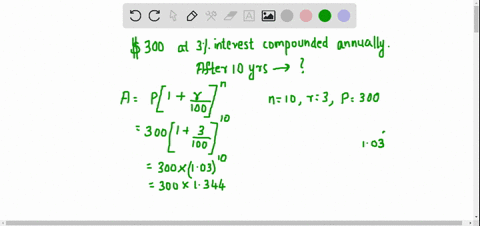 $300 at 3% interest compounded annually.
After 10 yrs → ?
A = P[1 + r/100]^n n=10, r=3, P=300
= 300[1 + 3/100]^10
1.03
= 300 × (1.03)^10
= 300 × 1.344